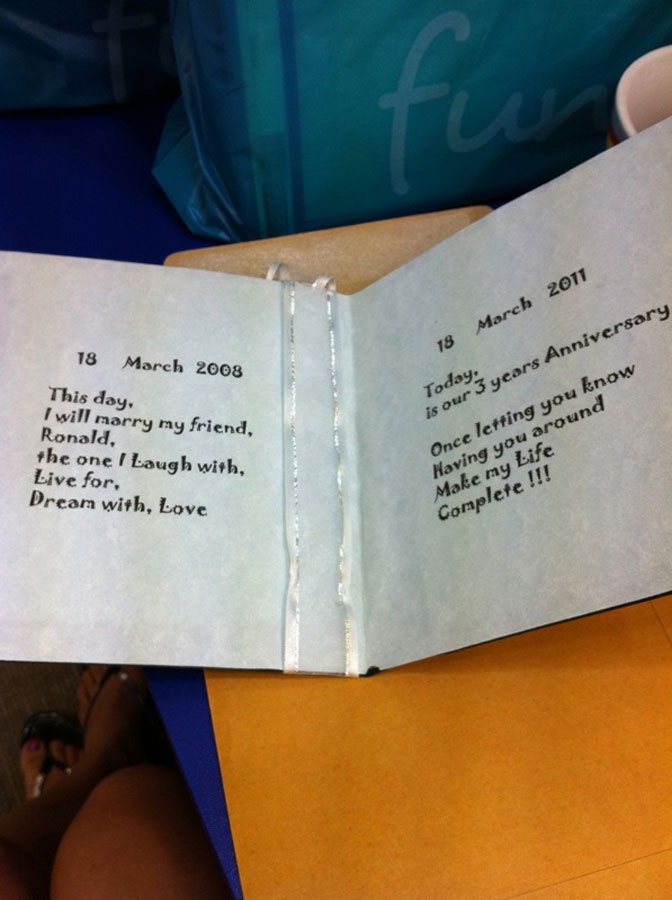 fun
18 March 2008
This day,
I will marry my friend,
Ronald,
the one I Laugh with,
Live for,
Dream with, Love
18 March 2011
Today,
is our 3 years Anniversary
Once letting you know
Having you around
Make my Life
Complete !!!